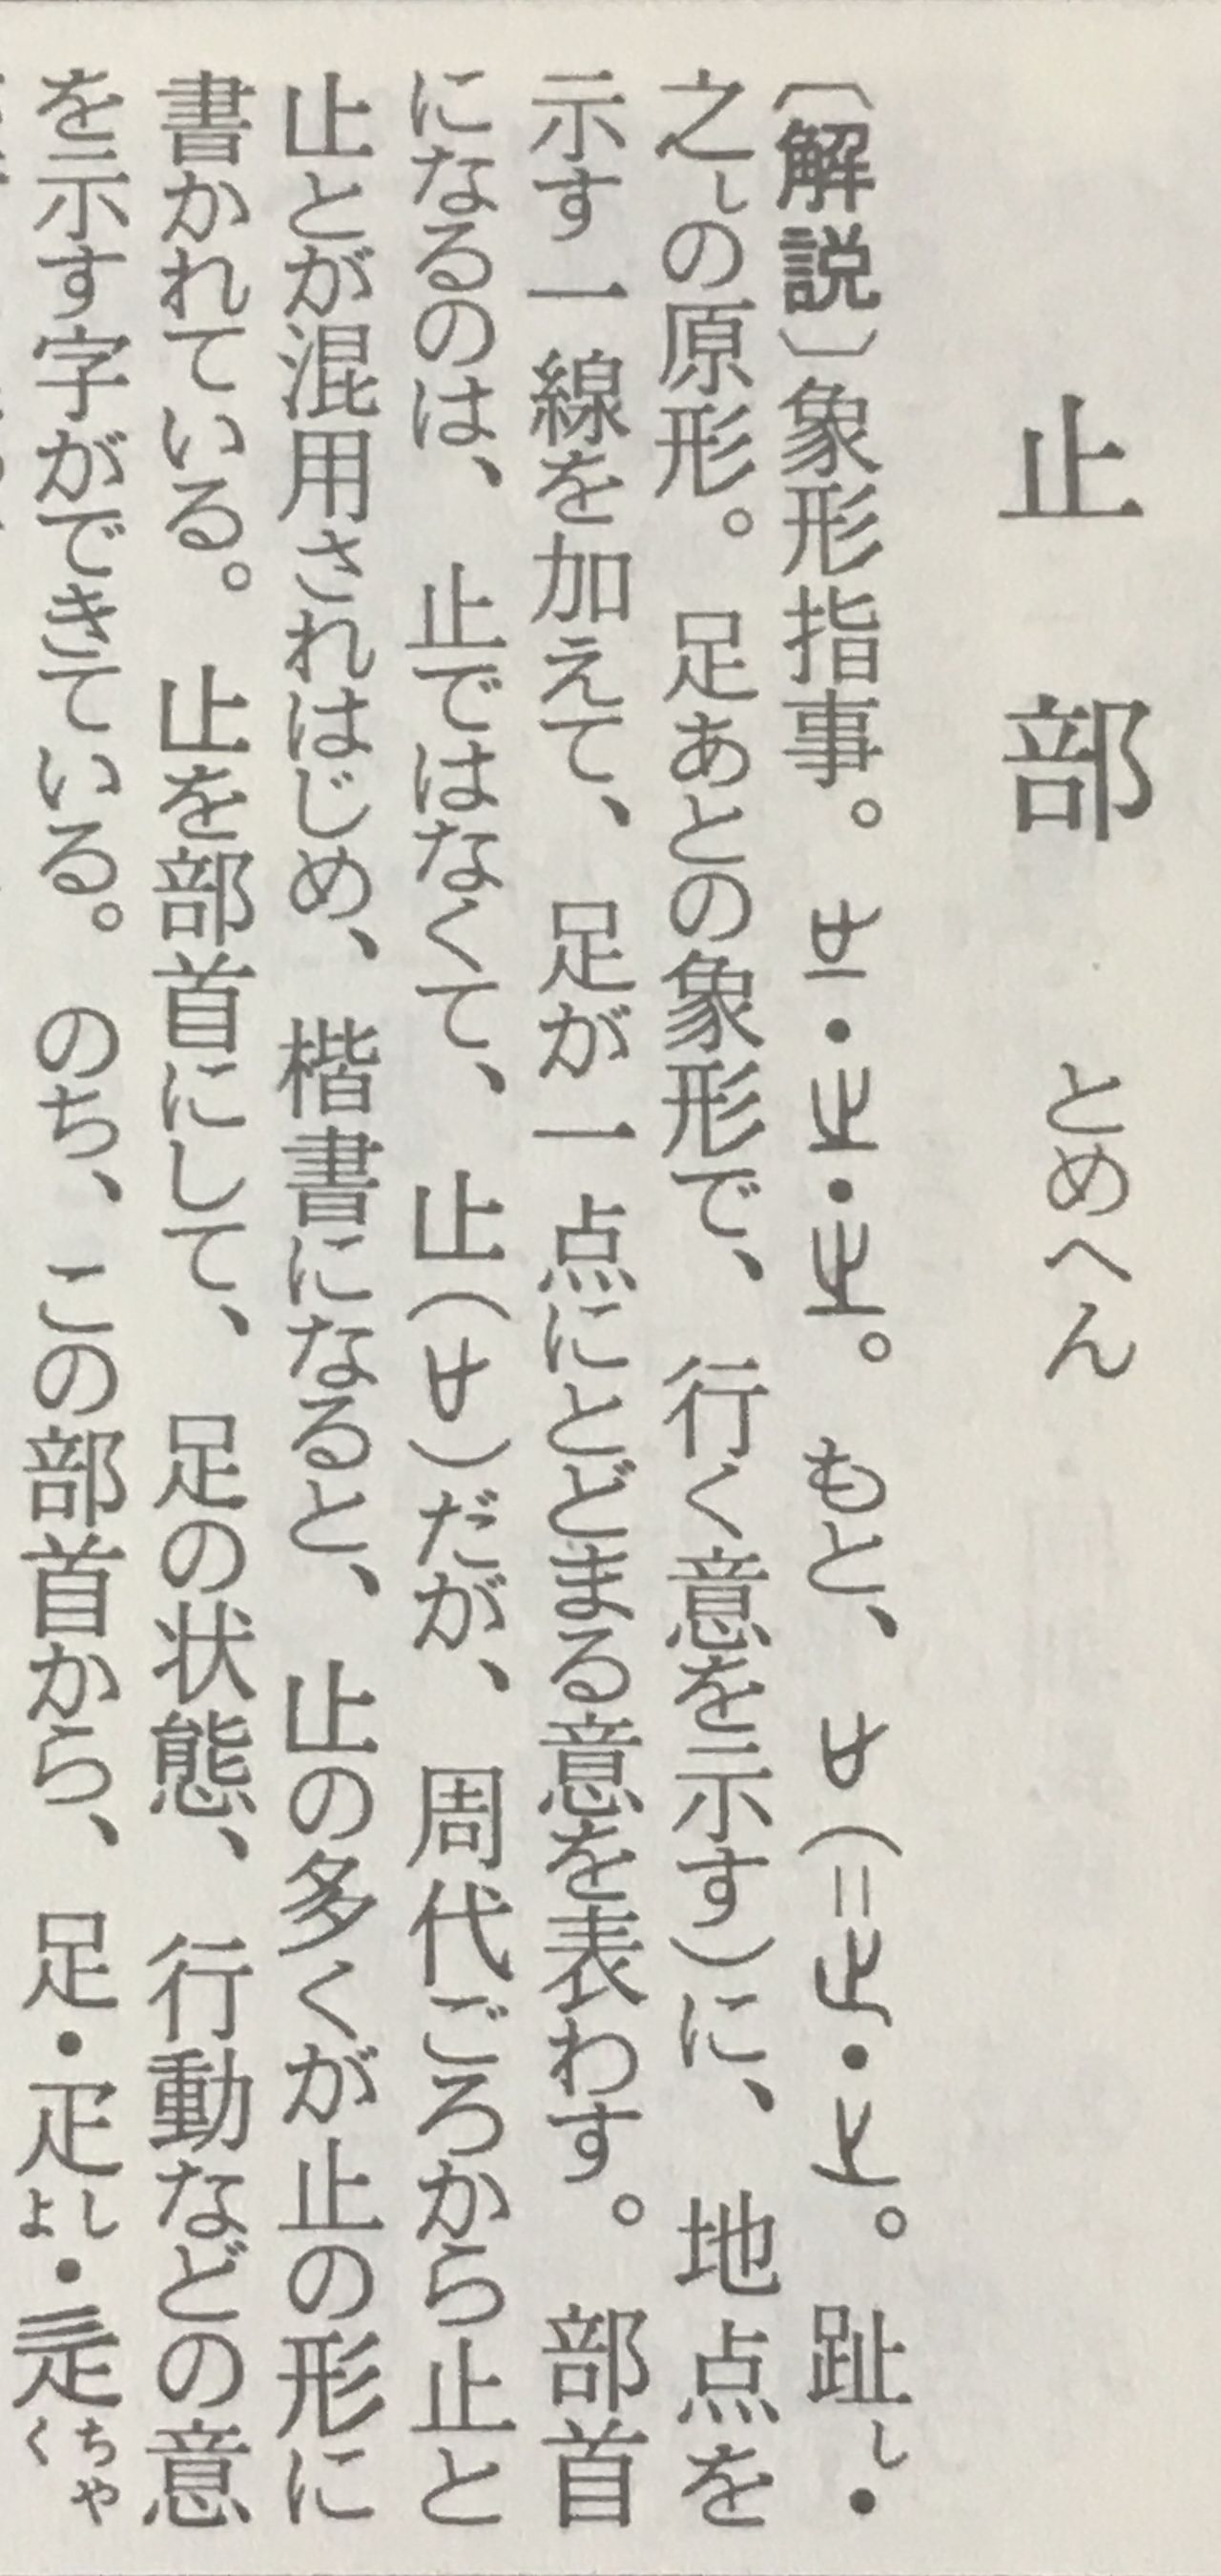 止部 とめへん
〔解説〕象形指事。・・。もと、(=・。趾し・
之しの原形。足あとの象形で、行く意を示す)に、地点を
示す一線を加えて、足が一点にとどまる意を表わす。部首
になるのは、止ではなくて、止()だが、周代ごろから止と
止とが混用されはじめ、楷書になると、止の多くが止の形に
書かれている。止を部首にして、足の状態、行動などの意
を示す字ができている。のち、この部首から、足・疋しよ・辵ちやく